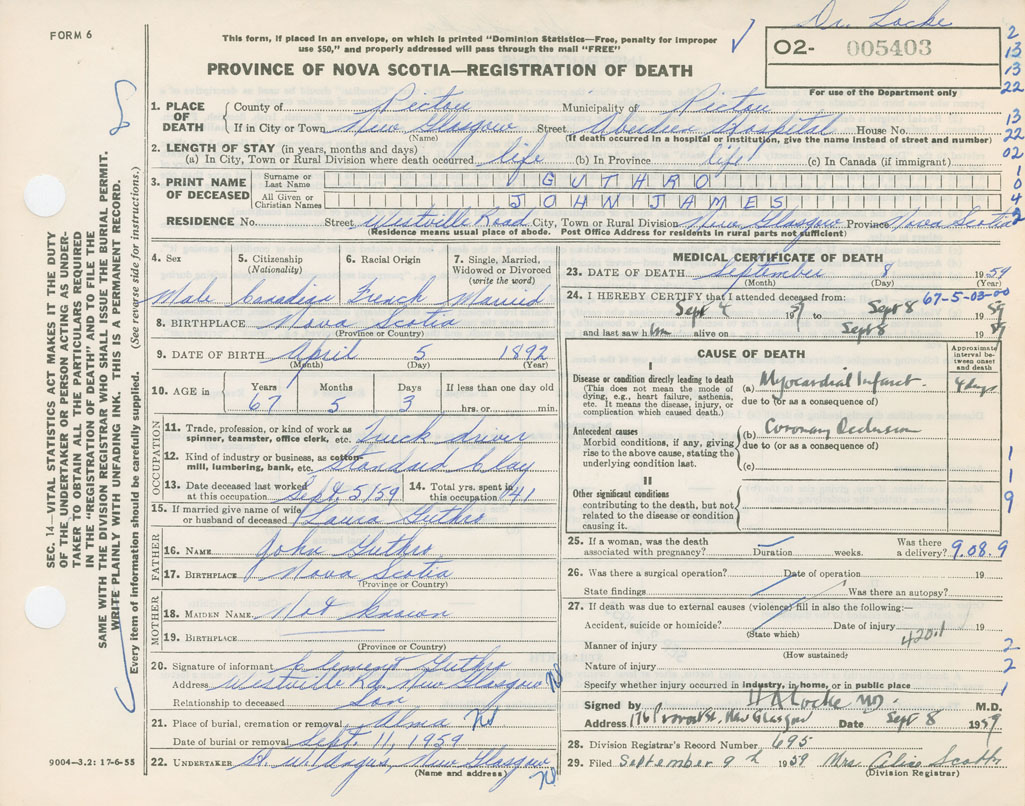 Dr. Locke
FORM 6
This form, if placed in an envelope, on which is printed "Dominion Statistics—Free, penalty for improper
use $50," and properly addressed will pass through the mail "FREE"
O2- 005403
For use of the Department only
PROVINCE OF NOVA SCOTIA—REGISTRATION OF DEATH
2
13
13
22
13
22
02
1
0
4
2
1. PLACE OF DEATH County of Pictou Municipality of Pictou
If in City or Town New Glasgow Street Aberdeen Hospital House No.
(Name) (If death occurred in a hospital or institution, give the name instead of street and number)
2. LENGTH OF STAY (in years, months and days)
(a) In City, Town or Rural Division where death occurred life (b) In Province life (c) In Canada (if immigrant)
3. PRINT NAME OF DECEASED Surname or Last Name GUTHRO
All Given or Christian Names JOHN JAMES
RESIDENCE No. Street Westville Road City, Town or Rural Division New Glasgow Province Nova Scotia
(Residence means usual place of abode. Post Office Address for residents in rural parts not sufficient)
4. Sex 5. Citizenship (Nationality) 6. Racial Origin 7. Single, Married, Widowed or Divorced (write the word)
Male Canadian French Married
8. BIRTHPLACE Nova Scotia
(Province or Country)
9. DATE OF BIRTH April 5 1892
(Month) (Day) (Year)
10. AGE in Years Months Days If less than one day old
67 5 3 hrs. or min.
OCCUPATION
11. Trade, profession, or kind of work as spinner, teamster, office clerk, etc. Truck driver
12. Kind of industry or business, as cotton-mill, lumbering, bank, etc. Standard Clay
13. Date deceased last worked at this occupation Sept. 5/59 14. Total yrs. spent in this occupation 41
15. If married give name of wife or husband of deceased Laura Guthro
FATHER
16. NAME John Guthro
17. BIRTHPLACE Nova Scotia
(Province or Country)
MOTHER
18. MAIDEN NAME Not known
19. BIRTHPLACE
(Province or Country)
20. Signature of informant Clement Guthro
Address Westville Rd. New Glasgow NS
Relationship to deceased Son
21. Place of burial, cremation or removal Alma NS
Date of burial or removal Sept. 11, 1959
22. UNDERTAKER New Glasgow NS
(Name and address)
9004—3.2: 17-6-55
MEDICAL CERTIFICATE OF DEATH
23. DATE OF DEATH September 8 1959
(Month) (Day) (Year)
24. I HEREBY CERTIFY that I attended deceased from: 67-5-03-00
Sept 4 1959 to Sept 8 1959
and last saw him alive on Sept 8 1959
CAUSE OF DEATH
Approximate interval between onset and death
I
Disease or condition directly leading to death
(This does not mean the mode of dying, e.g., heart failure, asthenia, etc. It means the disease, injury, or complication which caused death.)
(a) Myocardial Infarct. 4 days
due to (or as a consequence of)
Antecedent causes
Morbid conditions, if any, giving rise to the above cause, stating the underlying condition last.
(b) Coronary Occlusion
due to (or as a consequence of)
(c)
II
Other significant conditions
contributing to the death, but not related to the disease or condition causing it.
1
1
9
25. If a woman, was the death associated with pregnancy? Duration weeks. Was there a delivery? 9.08.9
26. Was there a surgical operation? Date of operation 19
State findings Was there an autopsy?
27. If death was due to external causes (violence) fill in also the following:—
Accident, suicide or homicide? Date of injury 19
(State which) 420.1
Manner of injury 2
(How sustained)
Nature of injury 2
Specify whether injury occurred in industry, in home, or in public place 1
Signed by H A Locke MD. M.D.
Address 176 Provost St, New Glasgow Date Sept 8 1959
28. Division Registrar's Record Number 695
29. Filed September 9th 1959 Mrs. Alice Scott
(Division Registrar)
SEC. 14—VITAL STATISTICS ACT MAKES IT THE DUTY
OF THE UNDERTAKER OR PERSON ACTING AS UNDER-
TAKER TO OBTAIN ALL THE PARTICULARS REQUIRED
IN THE "REGISTRATION OF DEATH" AND TO FILE THE
SAME WITH THE DIVISION REGISTRAR WHO SHALL ISSUE THE BURIAL PERMIT.
WRITE PLAINLY WITH UNFADING INK. THIS IS A PERMANENT RECORD.
Every item of information should be carefully supplied. (See reverse side for instructions.)